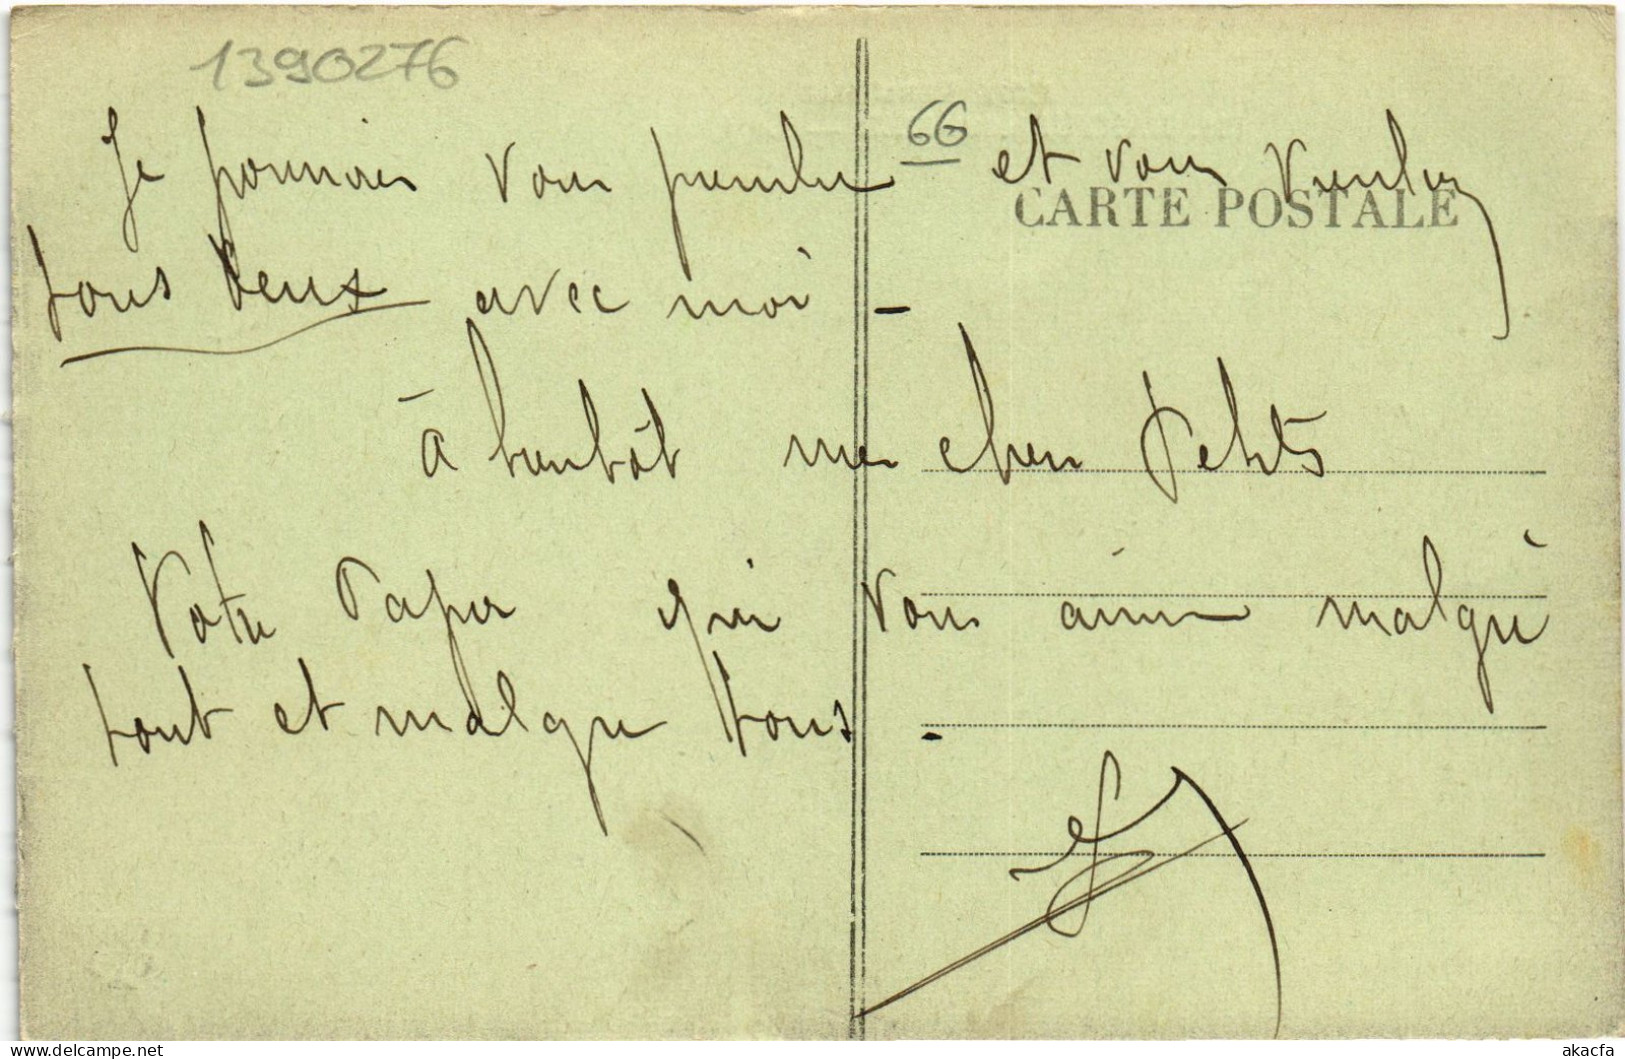 1390276
66
Je pourrais vous prendre et vous
CARTE POSTALE
tous deux avec moi -
à bientôt mes chers Petits
Votre Papa qui vous aime malgré
tout et malgré tous.
delcampe.net
akacfa